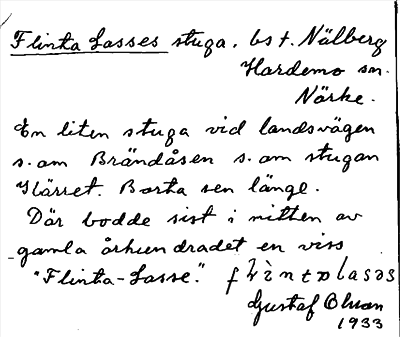 Flinta Lasses stuga, bst. Nälberg
Hardemo sn.
Närke.
En liten stuga vid landsvägen
s. om Brändåsen s. om stugan
Kärret. Borta sen länge.
Där bodde sist i mitten av
gamla århundradet en viss
"Flinta-Lasse".
Gustaf Olson
1933